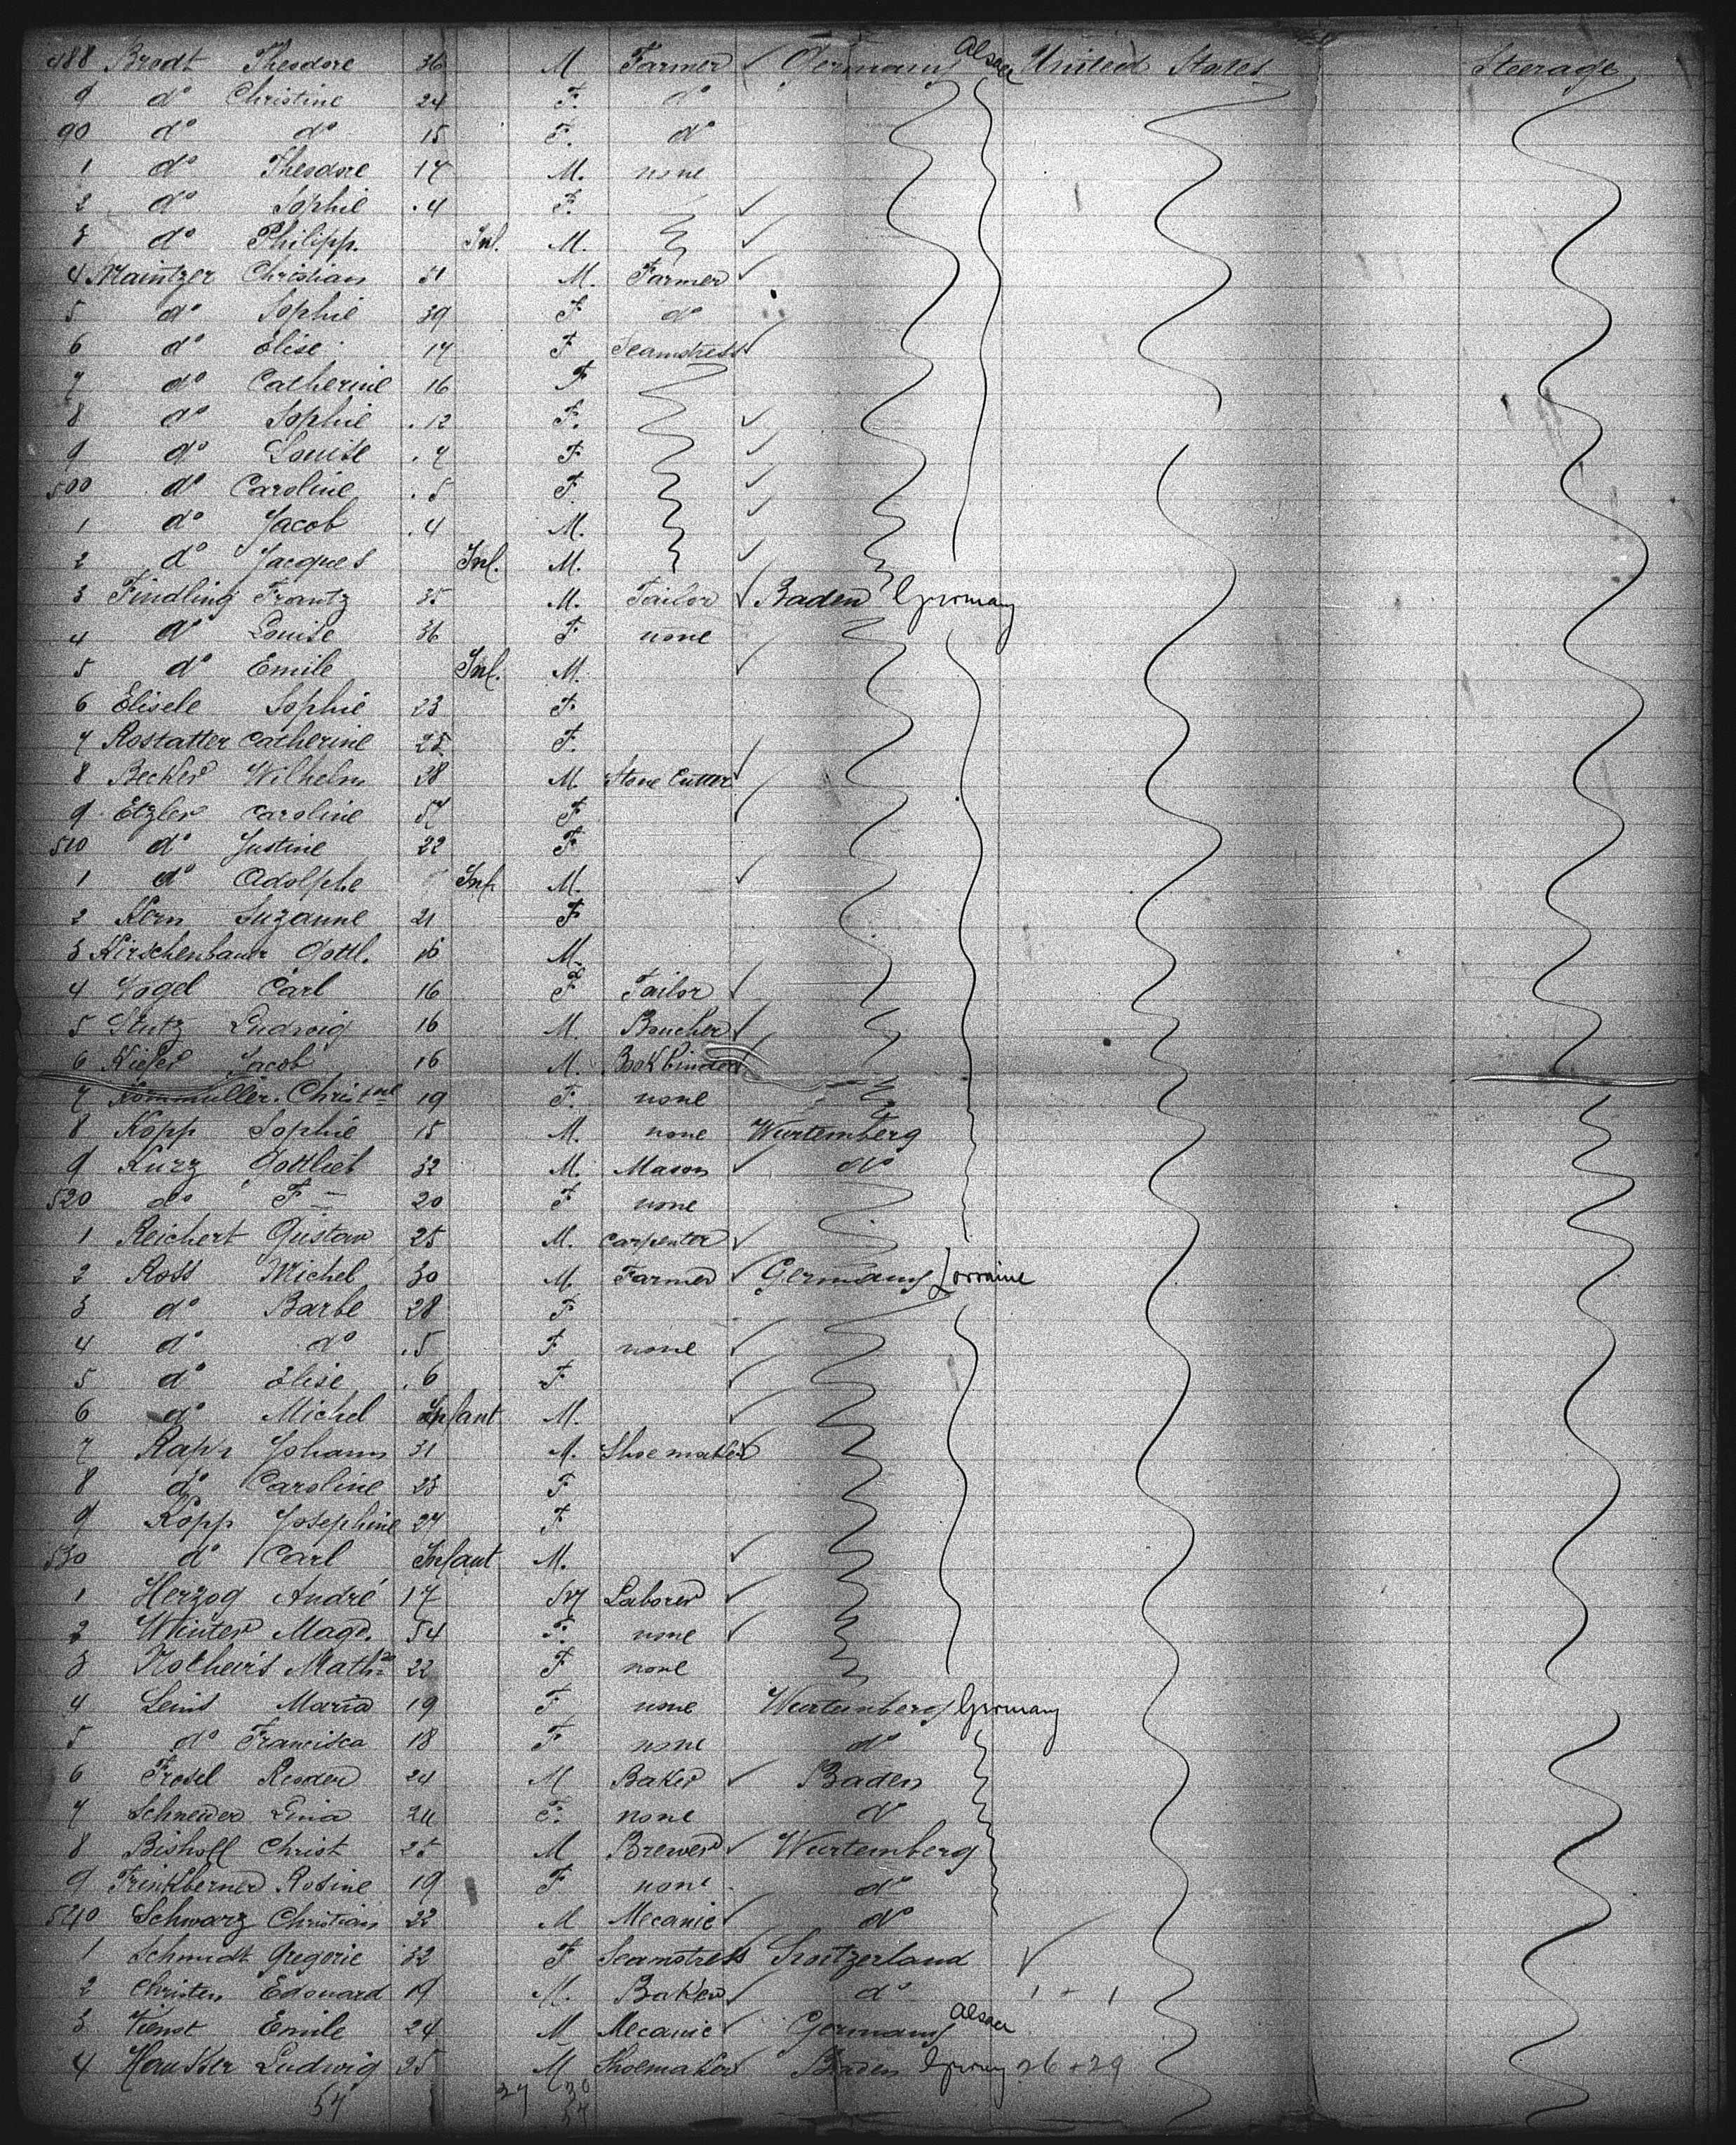 488 Brodt Theodore 36 M Farmer ✓ Germany Alsace United States Steerage
9 do Christine 24 F. do
90 do do 15 F. do
1 do Theodore 14 M. none
2 do Sophie .4 F. ✓
3 do Philipp. Inf. M. ✓
4 Maintzer Christian 51 M. Farmer ✓
5 do Sophie 39 F do
6 do Elise 17 F Seamstress ✓
7 do Catherine 16 F
8 do Sophie .12 F. ✓
9 do Louise .7 F ✓
500 do Caroline .5 F. ✓
1 do Jacob .4 M. ✓
2 do Jacques Inf. M. ✓
3 Findling Frantz 35 M. Tailor ✓ Baden Germany
4 do Louise 36 F none
5 do Emile Inf. M. ✓
6 Elisele Sophie 23 F
7 Rostatter Catherine 25 F.
8 Becker Wilhelm 28 M. Stone Cutter ✓
9 Etzler Caroline 57 F ✓
510 do Justine 22 F
1 do Adolphe Inf. M. ✓
2 Kern Suzanne 21 F
3 Kirschenbauer Gottl. 16 M.
4 Vogel Carl 16 F Tailor ✓
5 Stutz Ludwig 16 M. Boucher ✓
6 Kiefer Jacob 16 M. Bookbinder ✓
7 Kornmuller Christne 19 F. none
8 Kopp Sophie 15 M. none Wurtemberg
9 Kurz Gottlieb 32 M. Mason ✓ do
520 do F — 20 F none
1 Reichert Gustav 25 M. Carpenter ✓
2 Ross Michel 30 M. Farmer ✓ Germany Lorraine
3 do Barbe 28 F
4 do do .5 F none ✓
5 do Elise .6 F ✓
6 do Michel Infant M. ✓
7 Rapp Johann 31 M. Shoemaker ✓
8 do Caroline 23 F
9 Kopp Josephine 27 F
530 do Carl Infant M. ✓
1 Herzog André 17 M Laborer ✓
2 Winter Magd. 54 F. none ✓
3 Mathe 22 F none
4 Leins Maria 19 F none Wurtemberg Germany
5 do Francisca 18 F none do
6 24 M Baker ✓ Baden
7 Schneider Lina 24 F. none do
8 Bishoff Christ 25 M Brewer ✓ Wurtemberg
9 Trinkberner Rosine 19 F none do
540 Schwarz Christian 22 M Mecanic ✓ do
1 Schmidt Gregorie 32 F Seamstress Switzerland ✓
2 Christen Edouard 19 M. Baker ✓ do 1 + 1
3 Emile 24 M Mecanic ✓ Germany Alsace
4 Hausser Ludwig 25 M Shoemaker ✓ Baden Germany 26 + 29
57 27 30
57